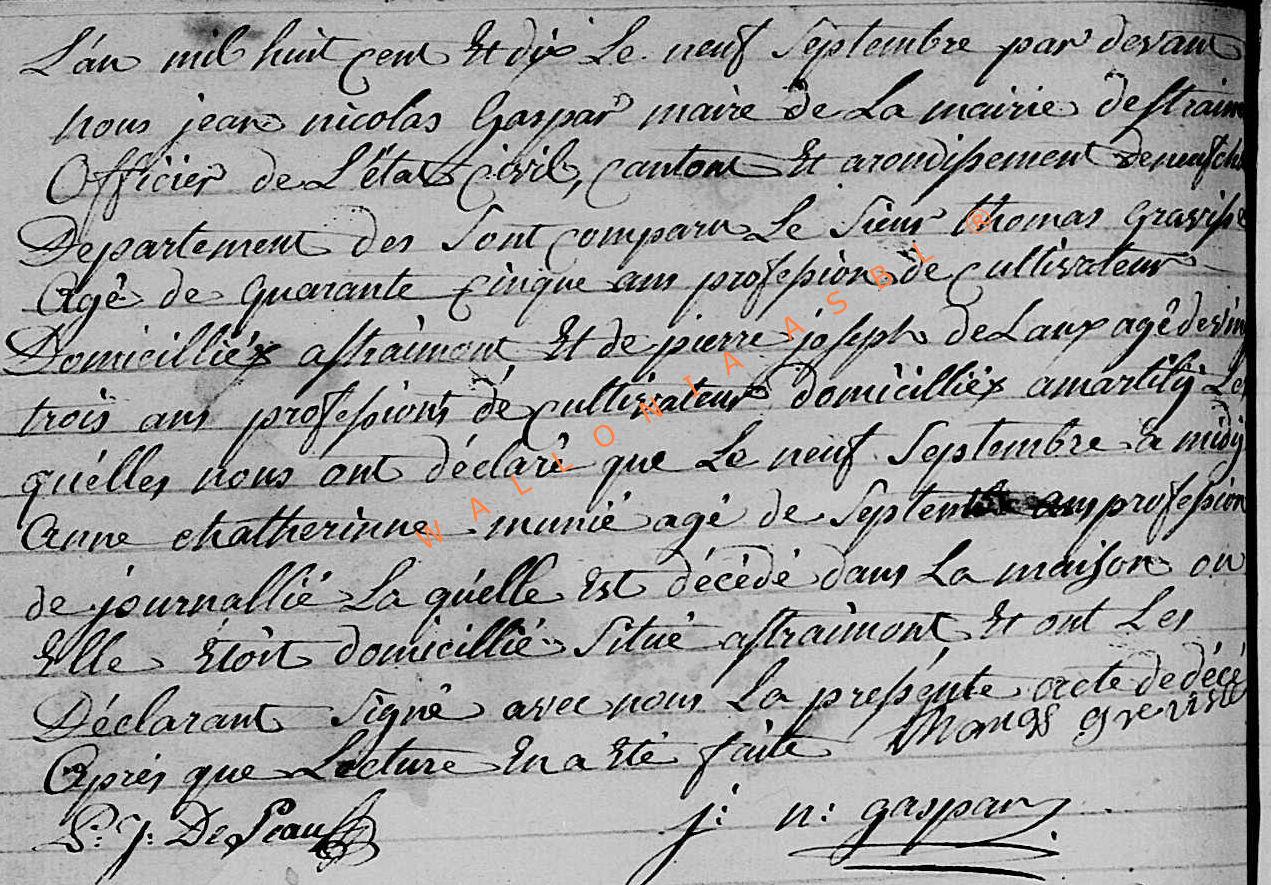 L'an mil huit cent Et dix Le neuf Septembre par devant
nous jean nicolas Gaspar maire de La mairie destraimont
Officier de L'état Civil, canton Et arondissement de neufcha
Departement des Sont comparu Le Sieur thomas Gravisse
Agé de quarante cinque ans profession de cultivateur
Domicilliéx astraimont Et de pierre joseph de Laux agé de vin
trois ans professions de cultivateur domicilliéx amartilÿ Les
quélles nous ont déclaré que Le neuf Septembre a midÿ
Anne chatherinne munié agé de Septente ans profession
de journallié La quélle Est décédé dans La maison ou
Elle étoit domicillié Situé astraimont Et ont Les
Déclarant Signé avec nous La présente acte de décé
Aprés que Lecture En a Eté faite thomas
P: J: De Leau j: n: gaspar
WALLONIA ASBL ®